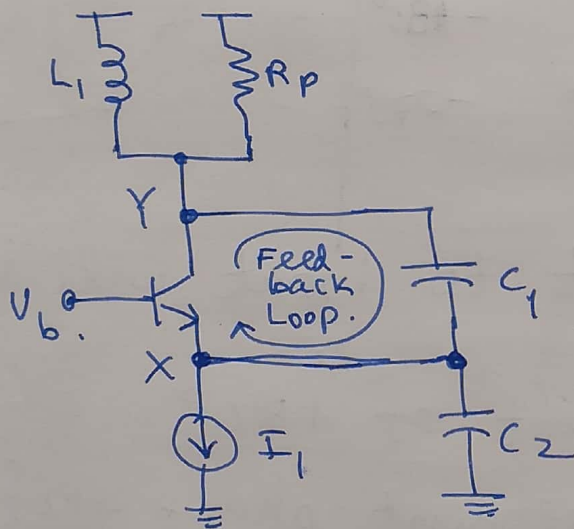 L1
Rp
Y
Feed-
back
Loop.
C1
Vb.
X
I1
C2